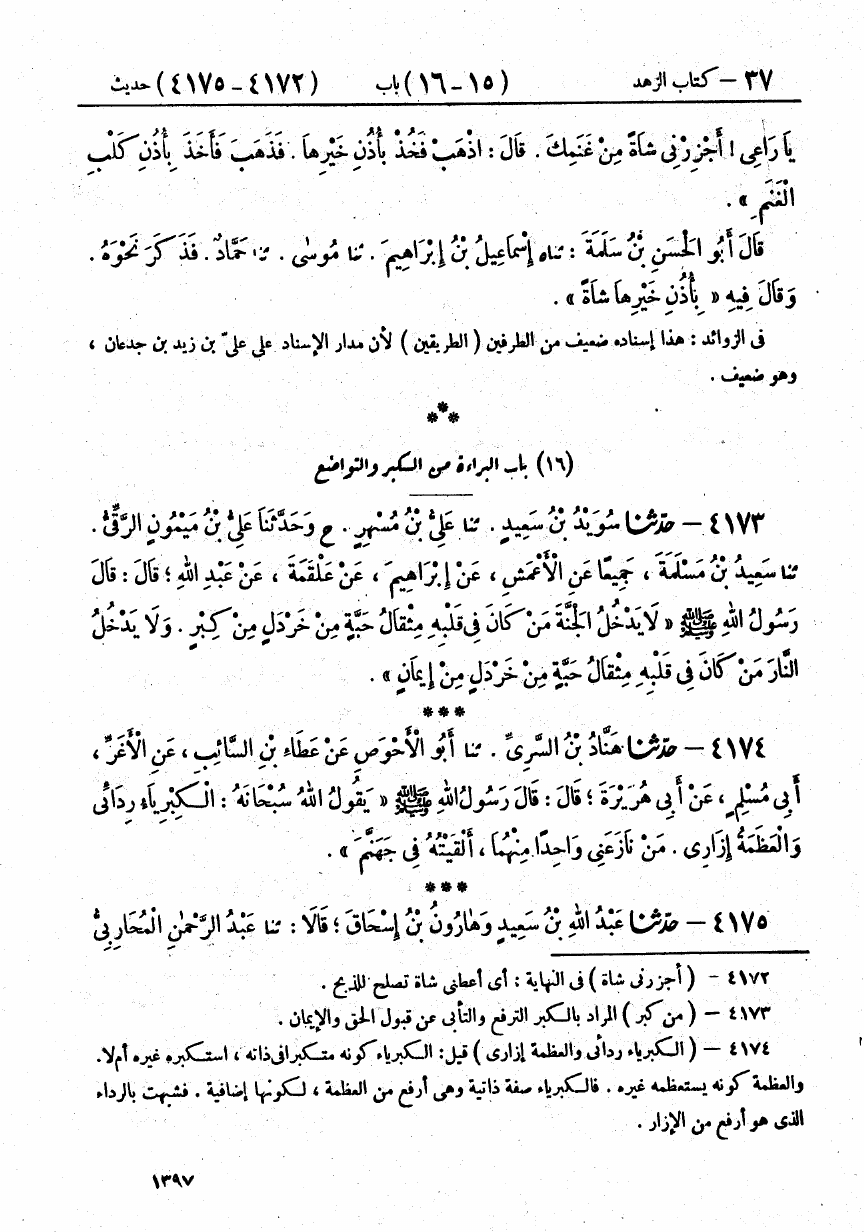 ٣٧ – كتاب الزهد (١٥-١٦) باب (٤١٧٢-٤١٧٥) حديث
يَا رَاعِى! أَجْزِرْنِى شَاةً مِنْ غَنَمِكَ. قَالَ: اذْهَبْ فَخُذْ بِأُذُنِ خَيْرِهَا. فَذَهَبَ فَأَخَذَ بِأُذُنِ كَلْبِ
الْغَنَمِ».
قَالَ أَبُو الْحَسَنِ بْنُ سَلَمَةَ: ثناه إِسْمَاعِيلُ بْنُ إِبْرَاهِيمَ. ثنا مُوسٰى. ثنا حَمَّادٌ. فَذَكَرَ نَحْوَهُ.
وَقَالَ فِيهِ «بِأُذُنِ خَيْرِهَا شَاةً».
فى الزوائد: هذا إسناده ضعيف من الطرفين (الطريقين) لأن مدار الإسناد على علىّ بن زيد بن جدعان،
وهو ضعيف.
***
(١٦) باب البراءة من الكبر والتواضع
٤١٧٣ – حدّثنا سُوَيْدُ بْنُ سَعِيدٍ. ثنا عَلِىُّ بْنُ مُسْهِرٍ. ح وَحَدَّثَنَا عَلِىُّ بْنُ مَيْمُونٍ الرَّقِّىُّ.
ثنا سَعِيدُ بْنُ مَسْلَمَةَ، جَمِيعًا عَنِ الْأَعْمَشِ، عَنْ إِبْرَاهِيمَ، عَنْ عَلْقَمَةَ، عَنْ عَبْدِ اللهِ؛ قَالَ: قَالَ
رَسُولُ اللهِ ﷺ «لَا يَدْخُلُ الْجَنَّةَ مَنْ كَانَ فِى قَلْبِهِ مِثْقَالُ حَبَّةٍ مِنْ خَرْدَلٍ مِنْ كِبْرٍ. وَلَا يَدْخُلُ
النَّارَ مَنْ كَانَ فِى قَلْبِهِ مِثْقَالُ حَبَّةٍ مِنْ خَرْدَلٍ مِنْ إِيمَانٍ».
***
٤١٧٤ – حدّثنا هَنَّادُ بْنُ السَّرِىِّ. ثنا أَبُو الْأَحْوَصِ عَنْ عَطَاءِ بْنِ السَّائِبِ، عَنِ الْأَغَرِّ،
أَبِى مُسْلِمٍ، عَنْ أَبِى هُرَيْرَةَ؛ قَالَ: قَالَ رَسُولُ اللهِ ﷺ «يَقُولُ اللهُ سُبْحَانَهُ: الْكِبْرِيَاءُ رِدَائِى
وَالْعَظَمَةُ إِزَارِى. مَنْ نَازَعَنِى وَاحِدًا مِنْهُمَا، أَلْقَيْتُهُ فِى جَهَنَّمَ».
***
٤١٧٥ – حدّثنا عَبْدُ اللهِ بْنُ سَعِيدٍ وَهَارُونُ بْنُ إِسْحَاقَ؛ قَالَا: ثنا عَبْدُ الرَّحْمٰنِ الْمُحَارِبِىُّ
٤١٧٢ – (أجزرنى شاة) فى النهاية: أى أعطنى شاة تصلح للذبح.
٤١٧٣ – (من كبر) المراد بالكبر الترفع والتأبى عن قبول الحق والإيمان.
٤١٧٤ – (الكبرياء ردائى والعظمة إزارى) قيل: الكبرياء كونه متكبرا فى ذاته، استكبره غيره أم لا.
والعظمة كونه يستعظمه غيره. فالكبرياء صفة ذاتية وهى أرفع من العظمة، لكونها إضافية. فشبهت بالرداء
الذى هو أرفع من الإزار.
١٣٩٧